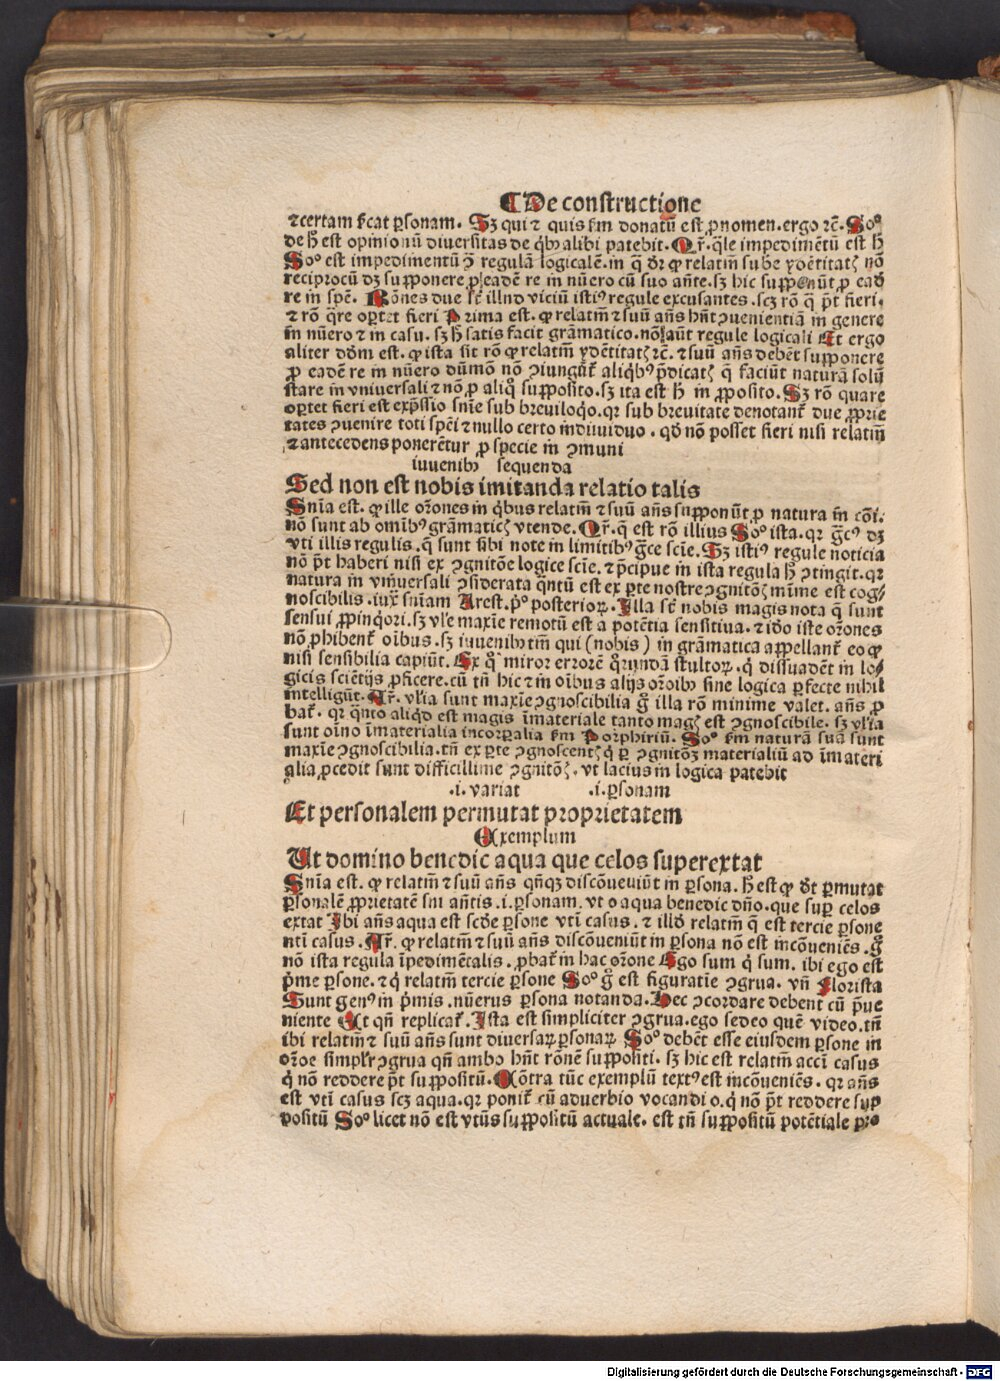 ¶ De constructione
⁊certam ſſicat ꝑſonam. Sꝫ qui ⁊ quis ẜm donatū eſt ꝓnomen. ergo ⁊c̄. Soº
de h̄ eſt opinionū diuerſitas de qͥbꝰ alibi patebit. Qr̄. q̄le impedimētū eſt h̄
Soº eſt impedimentū ꝯ̄ regulā logicalē. in q̄ dr̄ ꝙ relatm̄ ſub
reciprocū dꝫ ſupponere ꝓ eadē re in nūero cū ſuo an̄te. ſꝫ hic ſupponūt ꝓ eadē
re in ſpē. Rōnes due ſūt illud viciū iſtiꝰ regule excuſantes. ſcꝫ rō q̄ p̄t fieri.
⁊ rō q̄re oꝑtet fieri Prima eſt. ꝙ relatm̄ ⁊ ſuū an̄s hn̄t ꝯuenientiā in genere
in nūero ⁊ in caſu. ſꝫ h̄ ſatis facit grāmatico. nō aūt regule logicali Et ergo
aliter dōm eſt. ꝙ iſta ſit rō ꝙ relatm̄ ydētitatꝭ ⁊c̄. ⁊ ſuū an̄s debēt ſupponere
ꝓ eadē re in nūero dūmō nō ꝯiungūt̄ aliqͥbꝰ p̄dicatꝭ q̄ faciūt naturā ſolū
ſtare in vniuerſali ⁊ nō ꝓ aliqͦ ſuppoſito. ſꝫ ita eſt h̄ in ꝓpoſito. Sꝫ rō quare
oꝑtet fieri eſt exp̄ſſio ſnīe ſub breuiloqͦo. qꝛ ſub breuitate denotant̄ due ꝓprie
tates ꝯuenire toti ſpēi ⁊ nullo certo indiuiduo. qd̄ nō poſſet fieri niſi relatm̄
⁊ antecedens ponerētur ꝓ ſpecie in ꝯmuni
iuuenibꝰ ſequenda
Sed non eſt nobis imitanda relatio talis
Snīa eſt. ꝙ ille or̄ones in qͥbus relatm̄ ⁊ ſuū an̄s ſupponūt ꝓ natura in cōi.
nō ſunt ab omībꝰ grāmaticꝭ vtende. Qr̄. q̄ eſt rō illius Soº iſta. qꝛ gͣcꝰ dꝫ
vti illis regulis. q̄ ſunt ſibi note in limitibꝰ gͣce ſciē. Sꝫ iſtiꝰ regule noticia
nō p̄t haberi niſi ex ꝯgnitōe logice ſciē. ⁊ p̄cipue in iſta regula h̄ ꝯtingit. qꝛ
natura in vniuerſali ꝯſiderata qn̄tū eſt ex ꝑte noſtre ꝯgnitōꝭ mīme eſt cog/
noſcibilis. iux̄ ſnīam Areſt. pͦ. poſterioꝝ. Illa ſūt nobis magis nota q̄ ſunt
ſenſui ꝓpinqͥori. ſꝫ vl̄e maxīe remotū eſt a potētia ſenſitiua. ⁊ idō iſte or̄ones
nō ꝓhibent̄ oībus. ſꝫ iuuenibꝰ tm̄ qui (nobis) in grāmatica appellant̄ eo ꝙ
niſi ſenſibilia capiūt. Ex qͦ miror errorē qͦrūndā ſtultoꝝ. qͥ diſſuadēt in lo/
gicis ſciētijs ꝓficere. cū tn̄ hic ⁊ in oībus alijs or̄oībꝰ ſine logica ꝑfecte nihil
intelligūt. Ar̄. vl̄ia ſunt maxīe ꝯgnoſcibilia gͦ illa rō minime valet. an̄s ꝓ
bat̄. qꝛ qͣnto aliqͥd eſt magis īmateriale tanto magꝭ eſt ꝯgnoſcibile. ſꝫ vl̄ia
ſunt oīno īmaterialia incorꝑalia ẜm Porphiriū. Soº ẜm naturā ſuā ſunt
maxīe ꝯgnoſcibilia. tn̄ ex ꝑte ꝯgnoſcentꝭ qͥ ꝑ ꝯgnitōꝫ materialiū ad īmateri
alia ꝓcedit ſunt difficillime ꝯgnitōꝭ. vt lacius in logica patebit
.i. variat .i. ꝑſonam
Et perſonalem permutat proprietatem
Exemplum
Ut domino benedic aqua que celos ſuperextat
Snīa eſt. ꝙ relatm̄ ⁊ ſuū an̄s qn̄qꝫ diſcōueniūt in ꝑſona. h̄ eſt ꝙ dt̄ ꝑmutat
ꝑſonalē ꝓprietatē ſui an̄tis. i. ꝑſonam. vt o aqua benedic dn̄o. que ſuꝑ celos
extat Ibi an̄s aqua eſt ſcd̄e ꝑſone vti caſus. ⁊ illd̄ relatm̄ q̄ eſt tercie ꝑſone
nti caſus. Ar̄. ꝙ relatm̄ ⁊ ſuū an̄s diſcōueniūt in ꝑſona nō eſt incōueniēs. gͦ
nō iſta regula īpedimētalis. ꝓbat̄ in hac or̄one Ego ſum qͥ ſum. ibi ego eſt
p̄me ꝑſone. ⁊ qͥ relatm̄ tercie ꝑſone Soº gͦ eſt figuratīe ꝯgrua. vn̄ Floriſta
Sunt genꝰ in p̄mis. nūerus ꝑſona notanda. Hec ꝯcordare debent cū p̄ue
niente Et qn̄ replicat̄. Iſta eſt ſimpliciter ꝯgrua. ego ſedeo quē video. tn̄
ibi relatm̄ ⁊ ſuū an̄s ſunt diuerſaꝝ ꝑſonaꝝ Soº debēt eſſe eiuſdem ꝑſone in
or̄oe ſimpl̄r ꝯgrua qn̄ ambo hn̄t rōnē ſuppoſiti. ſꝫ hic eſt relatm̄ accī caſus
qͥ nō reddere p̄t ſuppoſitū. Cōtra tūc exemplū textꝰ eſt incōueniēs. qꝛ an̄s
eſt vti caſus ſcꝫ aqua. qꝛ ponit̄ cū aduerbio vocandi o. qͥ nō p̄t reddere ſup
poſitū Soº licet nō eſt vtūs ſuppoſitū actuale. eſt tn̄ ſuppoſitū potētiale pro
Digitalisierung gefördert durch die Deutsche Forschungsgemeinschaft - DFG